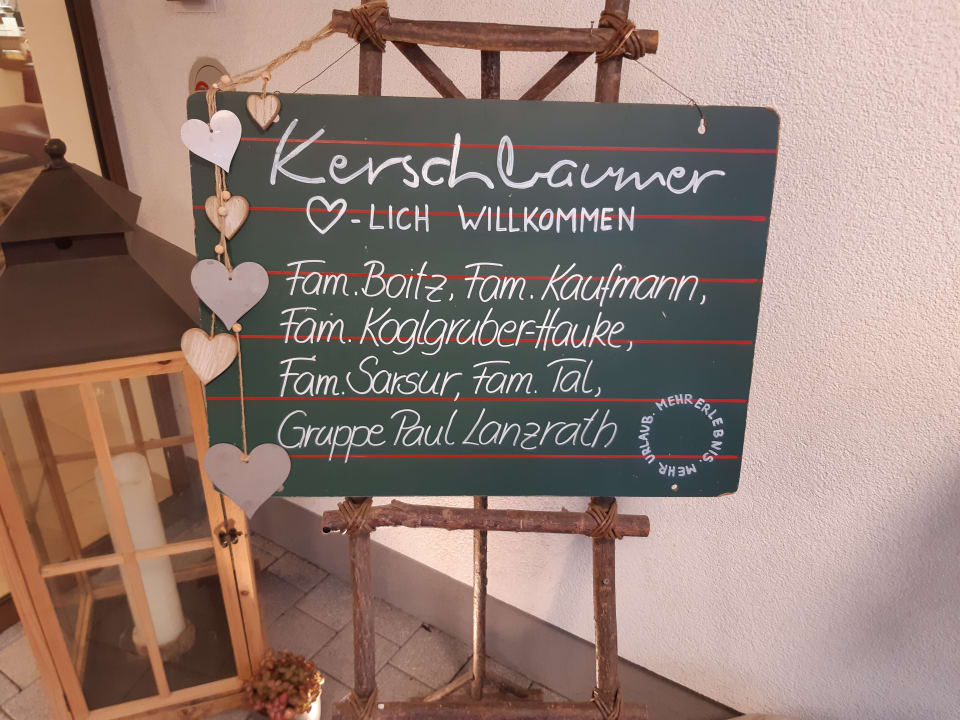 Kerschbaumer
♡-LICH WILLKOMMEN
Fam. Boitz, Fam. Kaufmann,
Fam. Koglgruber-Hauke,
Fam. Sarsur, Fam. Tal,
Gruppe Paul Lanzrath
MEHR ERLEBNIS. MEHR URLAUB.